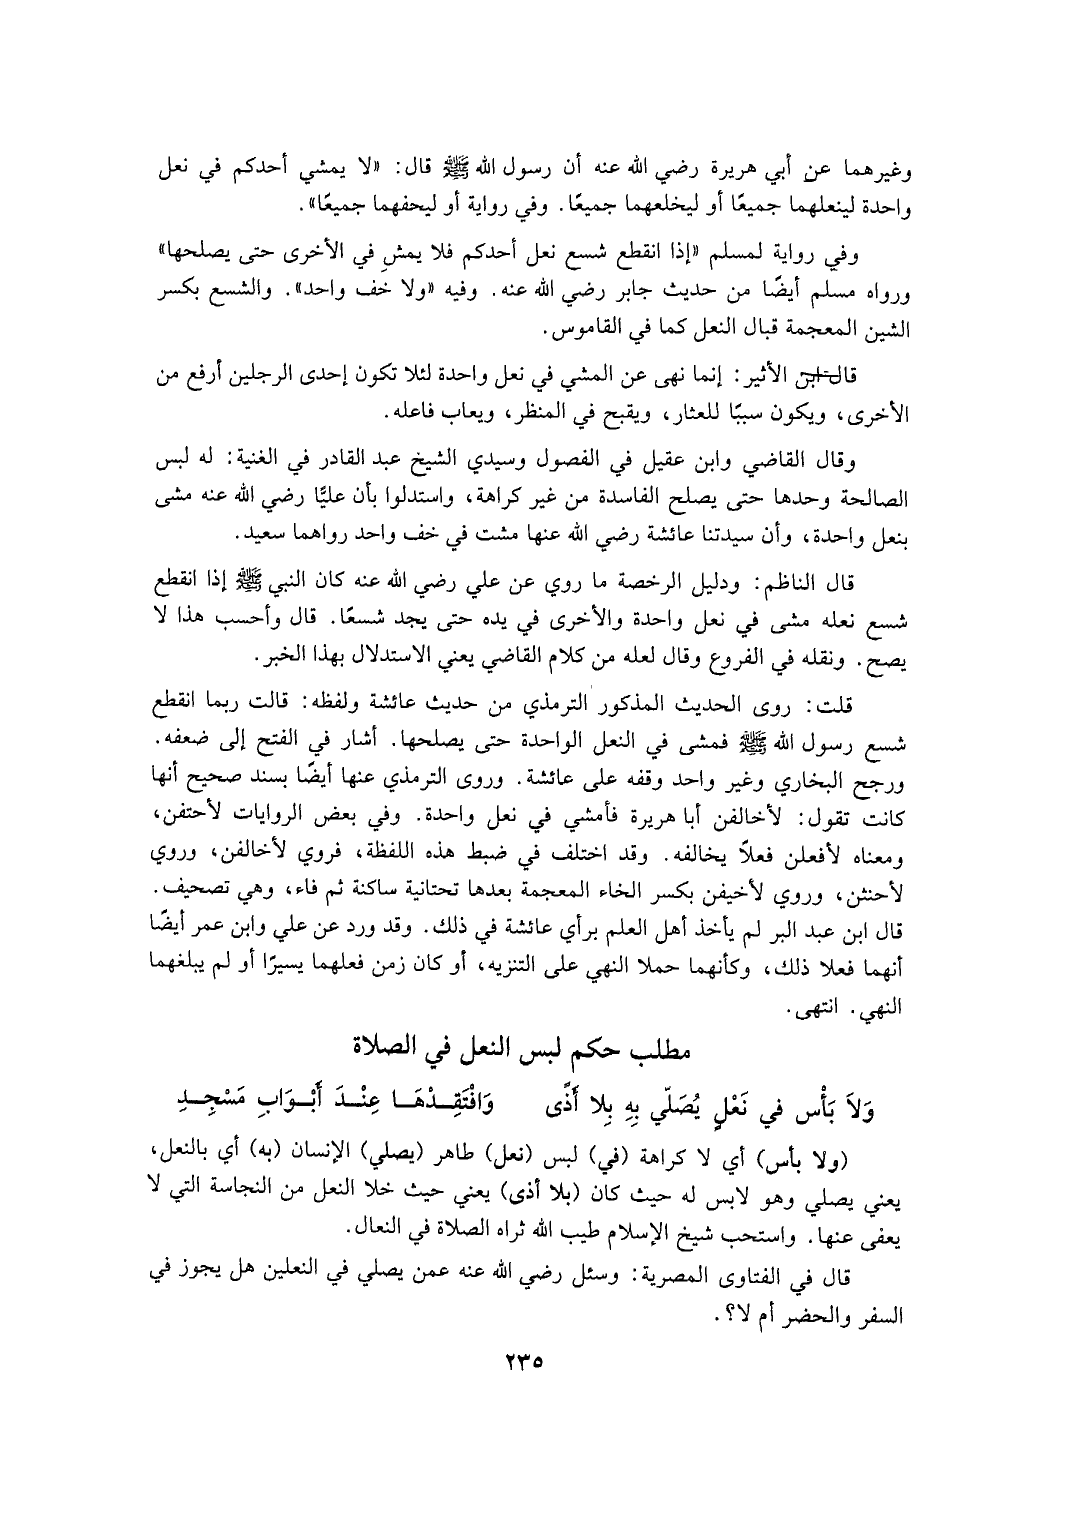 وغيرهما عن أبي هريرة رضي الله عنه أن رسول الله ﷺ قال: «لا يمشي أحدكم في نعل
واحدة لينعلهما جميعًا أو ليخلعهما جميعًا. وفي رواية أو ليحفهما جميعًا».
وفي رواية لمسلم «إذا انقطع شسع نعل أحدكم فلا يمشِ في الأخرى حتى يصلحها»
ورواه مسلم أيضًا من حديث جابر رضي الله عنه. وفيه «ولا خف واحد». والشسع بكسر
الشين المعجمة قبال النعل كما في القاموس.
قال ابن الأثير: إنما نهى عن المشي في نعل واحدة لئلا تكون إحدى الرجلين أرفع من
الأخرى، ويكون سببًا للعثار، ويقبح في المنظر، ويعاب فاعله.
وقال القاضي وابن عقيل في الفصول وسيدي الشيخ عبد القادر في الغنية: له لبس
الصالحة وحدها حتى يصلح الفاسدة من غير كراهة، واستدلوا بأن عليًّا رضي الله عنه مشى
بنعل واحدة، وأن سيدتنا عائشة رضي الله عنها مشت في خف واحد رواهما سعيد.
قال الناظم: ودليل الرخصة ما روي عن علي رضي الله عنه كان النبي ﷺ إذا انقطع
شسع نعله مشى في نعل واحدة والأخرى في يده حتى يجد شسعًا. قال وأحسب هذا لا
يصح. ونقله في الفروع وقال لعله من كلام القاضي يعني الاستدلال بهذا الخبر.
قلت: روى الحديث المذكور الترمذي من حديث عائشة ولفظه: قالت ربما انقطع
شسع رسول الله ﷺ فمشى في النعل الواحدة حتى يصلحها. أشار في الفتح إلى ضعفه.
ورجح البخاري وغير واحد وقفه على عائشة. وروى الترمذي عنها أيضًا بسند صحيح أنها
كانت تقول: لأخالفن أبا هريرة فأمشي في نعل واحدة. وفي بعض الروايات لأحتفن،
ومعناه لأفعلن فعلاً يخالفه. وقد اختلف في ضبط هذه اللفظة، فروي لأخالفن، وروي
لأحنثن، وروي لأخيفن بكسر الخاء المعجمة بعدها تحتانية ساكنة ثم فاء، وهي تصحيف.
قال ابن عبد البر لم يأخذ أهل العلم برأي عائشة في ذلك. وقد ورد عن علي وابن عمر أيضًا
أنهما فعلا ذلك، وكأنهما حملا النهي على التنزيه، أو كان زمن فعلهما يسيرًا أو لم يبلغهما
النهي. انتهى.
مطلب حكم لبس النعل في الصلاة
وَلاَ بَأْس في نَعْلٍ يُصَلّي بِهِ بِلا أَذًى وَافْتَقِـدْهَـا عِنْـدَ أَبْـوَابِ مَسْجِـدِ
(ولا بأس) أي لا كراهة (في) لبس (نعل) طاهر (يصلي) الإنسان (به) أي بالنعل،
يعني يصلي وهو لابس له حيث كان (بلا أذى) يعني حيث خلا النعل من النجاسة التي لا
يعفى عنها. واستحب شيخ الإسلام طيب الله ثراه الصلاة في النعال.
قال في الفتاوى المصرية: وسئل رضي الله عنه عمن يصلي في النعلين هل يجوز في
السفر والحضر أم لا؟.
٢٣٥